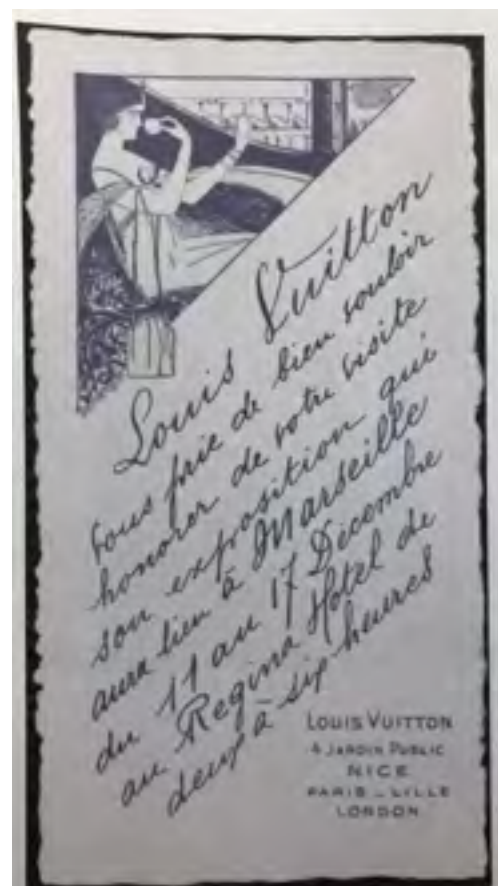 Louis Vuitton
vous prie de bien vouloir
honorer de votre visite
son exposition qui
aura lieu à Marseille
du 11 au 17 Décembre
au Regina Hotel de
deux à six heures
LOUIS VUITTON
4 JARDIN PUBLIC
NICE
PARIS _ LILLE
LONDON